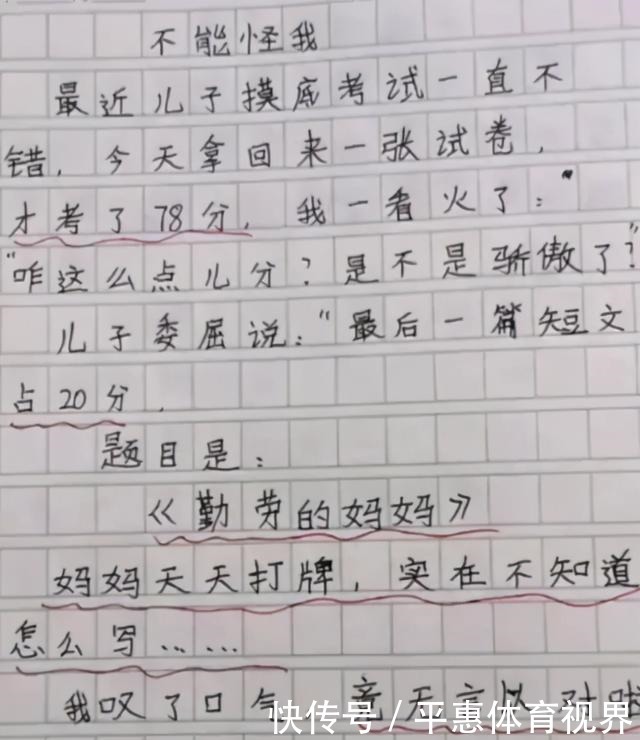 不能怪我
最近儿子摸底考试一直不
错，今天拿回来一张试卷，
才考了78分，我一看火了："
"咋这么点儿分？是不是骄傲了？"
儿子委屈说："最后一篇短文
占20分，
题目是：
《勤劳的妈妈》
妈妈天天打牌，实在不知道
怎么写……
我叹了口气 竟无言以对啦
快传号／平惠体育视界